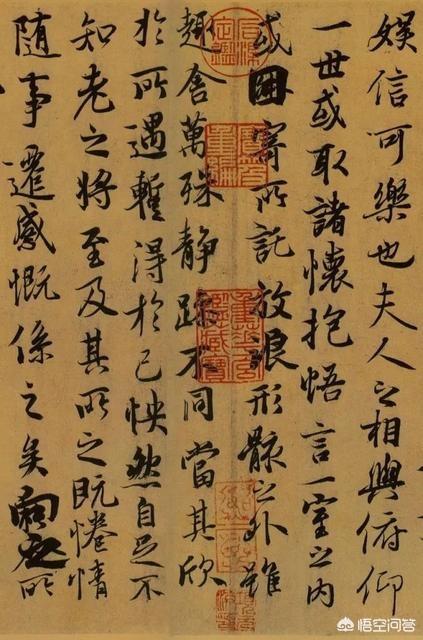 娛信可樂也夫人之相與俯仰
一世或取諸懷抱悟言一室之內
或因寄所託放浪形骸之外雖
趣舍萬殊靜躁不同當其欣
於所遇暫得於己怏然自足不
知老之將至及其所之既惓情
隨事遷感慨係之矣向之所
悟空问答